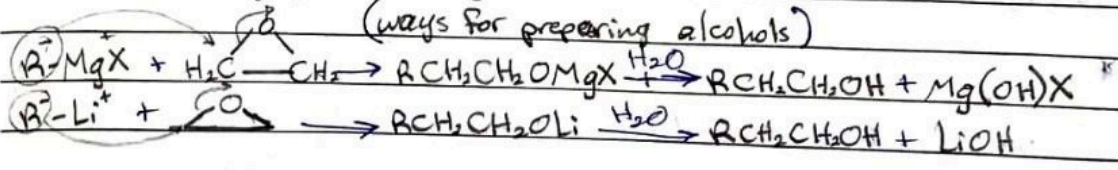 (ways for preparing alcohols)
R⁻-MgX⁺ + H₂C—CH₂ O → RCH₂CH₂OMgX H₂O + → RCH₂CH₂OH + Mg(OH)X
R⁻-Li⁺ + O → RCH₂CH₂OLi H₂O → RCH₂CH₂OH + LiOH